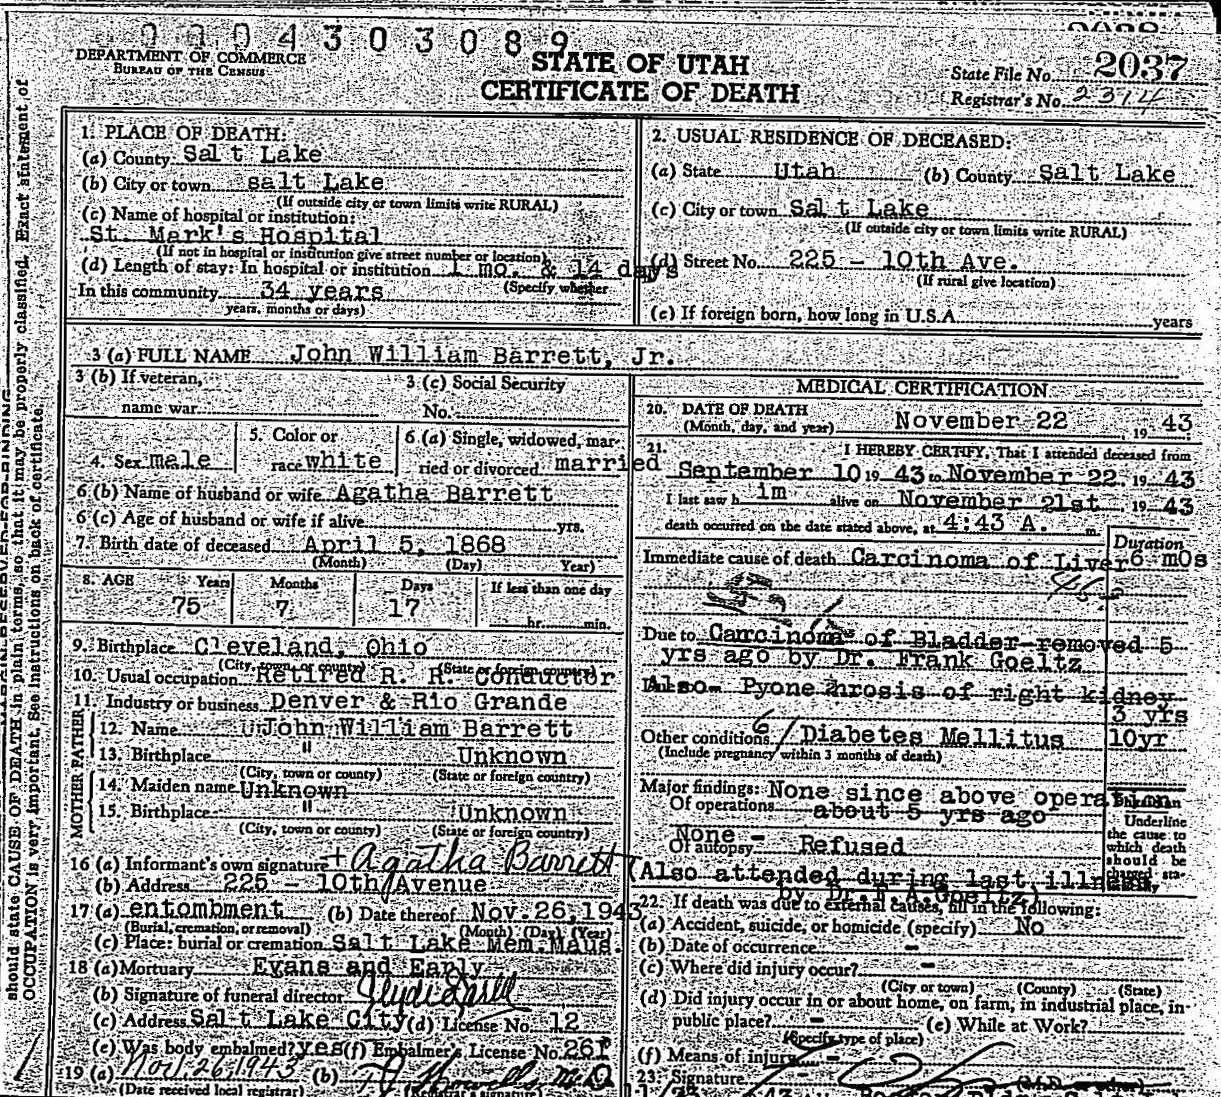 0004303089
DEPARTMENT OF COMMERCE
BUREAU OF THE CENSUS
STATE OF UTAH
CERTIFICATE OF DEATH
State File No. 2037
Registrar's No. 2314
1. PLACE OF DEATH:
(a) County Salt Lake
(b) City or town salt Lake
(If outside city or town limits write RURAL)
(c) Name of hospital or institution:
St. Mark's Hospital
(If not in hospital or institution give street number or location)
(d) Length of stay: In hospital or institution 1 mo. & 14 days
(Specify whether
In this community 34 years
years, months or days)
2. USUAL RESIDENCE OF DECEASED:
(a) State Utah (b) County Salt Lake
(c) City or town Salt Lake
(If outside city or town limits write RURAL)
(d) Street No. 225 - 10th Ave.
(If rural give location)
(e) If foreign born, how long in U.S.A. years
3 (a) FULL NAME John William Barrett, Jr.
3 (b) If veteran,
name war
3 (c) Social Security
No.
4. Sex male
5. Color or
race white
6 (a) Single, widowed, mar-
ried or divorced married
6 (b) Name of husband or wife Agatha Barrett
6 (c) Age of husband or wife if alive yrs.
7. Birth date of deceased April 5, 1868
(Month) (Day) Year)
8. AGE Years Months Days If less than one day
75 7 17 hr. min.
9. Birthplace Cleveland, Ohio
(City, town, or county) (State or foreign country)
10. Usual occupation Retired R. R. Conductor
11. Industry or business Denver & Rio Grande
FATHER
12. Name John William Barrett
13. Birthplace " Unknown
(City, town or county) (State or foreign country)
MOTHER
14. Maiden name Unknown
15. Birthplace " Unknown
(City, town or county) (State or foreign country)
16 (a) Informant's own signature + Agatha Barrett
(b) Address 225 - 10th Avenue
17 (a) entombment (b) Date thereof Nov.26,1943
(Burial, cremation, or removal) (Month) (Day) (Year)
(c) Place: burial or cremation Salt Lake Mem.Maus.
18 (a) Mortuary Evans and Early
(b) Signature of funeral director
(c) Address Salt Lake City (d) License No. 12
(e) Was body embalmed? yes (f) Embalmer's License No.
19 (a) Nov. 26, 1943 (b)
(Date received local registrar) (Registrar's signature)
MEDICAL CERTIFICATION
20. DATE OF DEATH November 22 19 43
(Month, day, and year)
21. I HEREBY CERTIFY, That I attended deceased from
September 10 19 43 to November 22, 19 43
I last saw h im alive on November 21st, 19 43
death occurred on the date stated above, at 4:43 A. m.
Duration
Immediate cause of death Carcinoma of Liver 6 mos
Due to Carcinoma of Bladder-removed 5
yrs ago by Dr. Frank Goeltz
Also- Pyonephrosis of right kidney
3 yrs
Other conditions Diabetes Mellitus 10yr
(Include pregnancy within 3 months of death)
Major findings: None since above operation
Of operations about 5 yrs ago
None -
Of autopsy Refused
Underline
the cause to
which death
should be
charged sta-
(Also attended during last illness
by Dr. F.A.Goeltz)
22. If death was due to external causes, fill in the following:
(a) Accident, suicide, or homicide (specify) No
(b) Date of occurrence -
(c) Where did injury occur? -
(City or town) (County) (State)
(d) Did injury occur in or about home, on farm, in industrial place, in
public place? - (e) While at Work?
(Specify type of place)
(f) Means of injury -
23. Signature
(M.D. or other)
should state CAUSE OF DEATH in plain terms, so that it may be properly classified. Exact statement of
OCCUPATION is very important. See instructions on back of certificate.